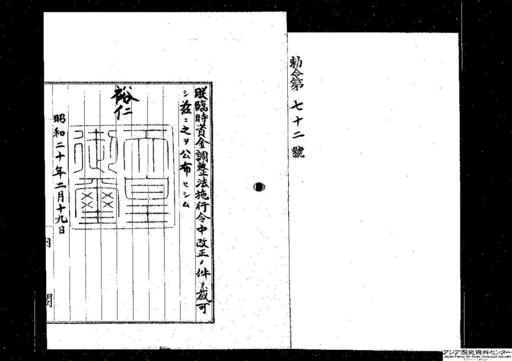 勅令第七十二號
朕臨時資金調整法施行令中改正ノ件ヲ裁可
シ茲ニ之ヲ公布セシム
裕仁
天皇御璽
昭和二十年二月十九日
内閣
アジア歴史資料センター